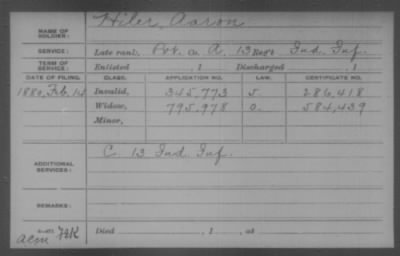 NAME OF SOLDIER: Hiler, Aaron
SERVICE: Late rank, Pvt. Co. A, 13 Reg't Ind. Inf.
TERM OF SERVICE: Enlisted , 1 Discharged , 1
DATE OF FILING. CLASS. APPLICATION NO. LAW. CERTIFICATE NO.
1880, Feb. 14 Invalid, 345,773 S. 286,418
Widow, 795,978 O. 584,439
Minor,
ADDITIONAL SERVICES: C. 13 Ind. Inf.
REMARKS:
Died , 1 , at